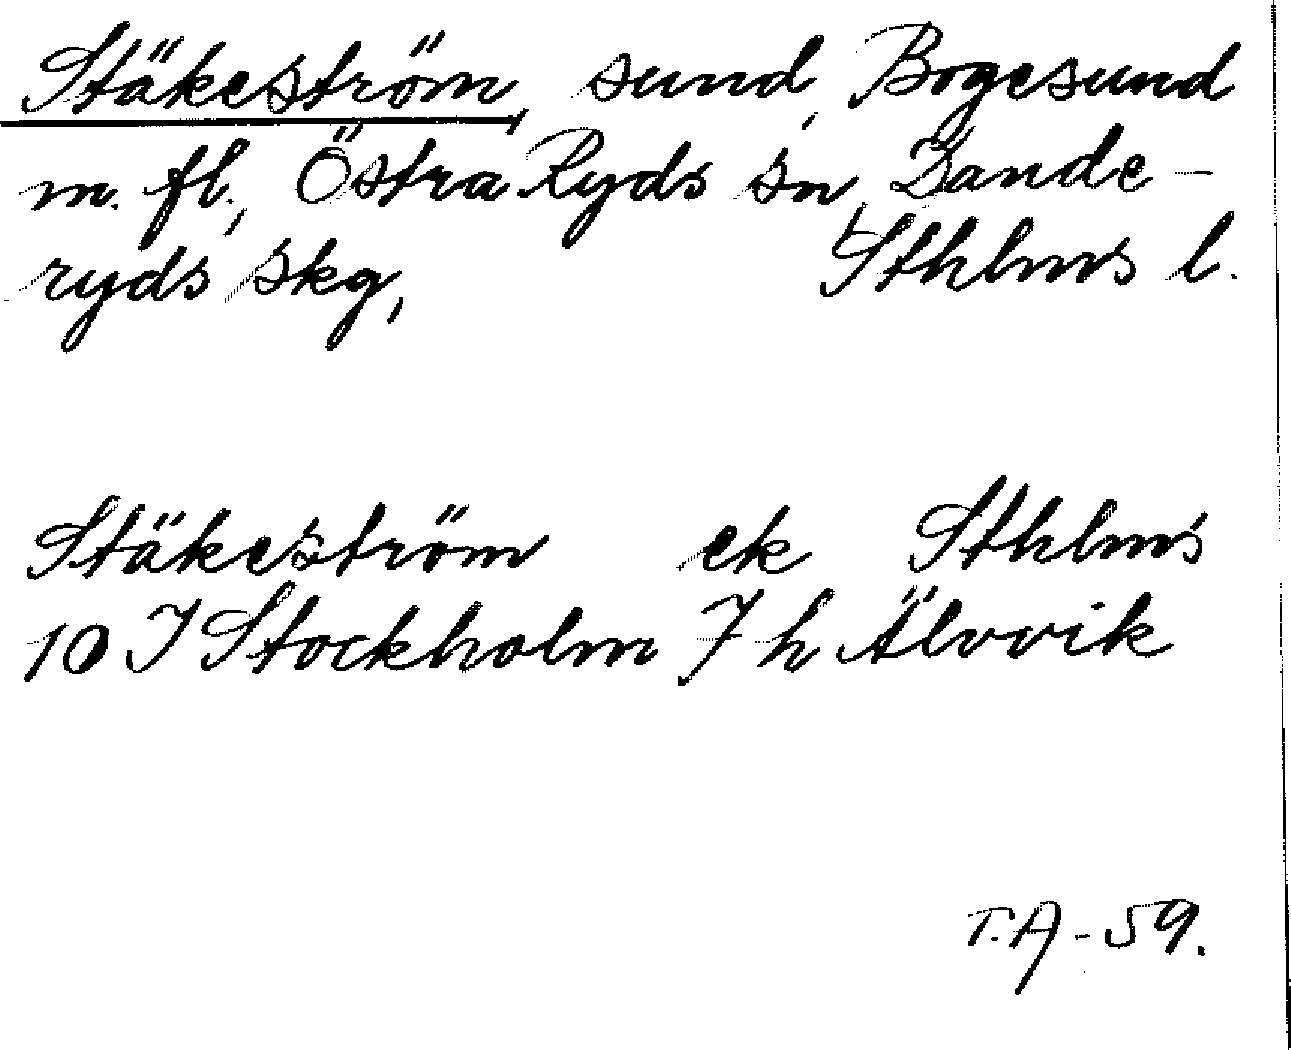 Stäkeström, sund, Bogesund
m. fl., Östra Ryds sn, Dande-
ryds skg, Sthlms l.
Stäkeström ek Sthlms
10 I Stockholm 7 h Älvvik
T.A-59.